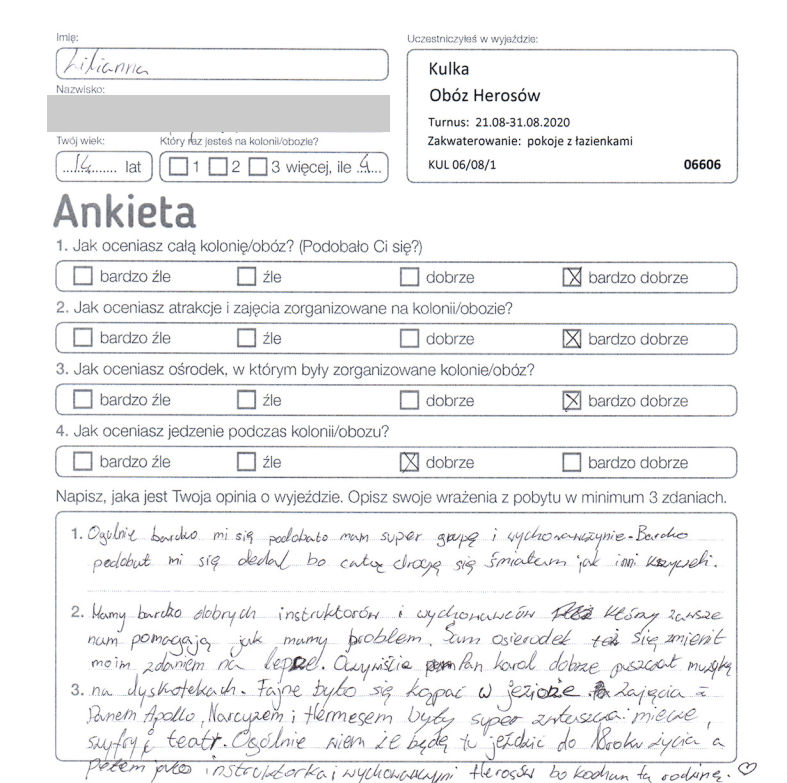 Imię:
Lilianna
Nazwisko:
Twój wiek:
14 lat
Który raz jesteś na kolonii/obozie?
1 2 3 więcej, ile 4
Uczestniczyłeś w wyjeździe:
Kulka
Obóz Herosów
Turnus: 21.08-31.08.2020
Zakwaterowanie: pokoje z łazienkami
KUL 06/08/1 06606
Ankieta
1. Jak oceniasz całą kolonię/obóz? (Podobało Ci się?)
bardzo źle źle dobrze bardzo dobrze
2. Jak oceniasz atrakcje i zajęcia zorganizowane na kolonii/obozie?
bardzo źle źle dobrze bardzo dobrze
3. Jak oceniasz ośrodek, w którym były zorganizowane kolonie/obóz?
bardzo źle źle dobrze bardzo dobrze
4. Jak oceniasz jedzenie podczas kolonii/obozu?
bardzo źle źle dobrze bardzo dobrze
Napisz, jaka jest Twoja opinia o wyjeździe. Opisz swoje wrażenia z pobytu w minimum 3 zdaniach.
1. Ogólnie bardzo mi się podobało mam super grupę i wychowawczynie. Bardzo
podobał mi się dedal bo całą drogę się śmiałam jak inni krzyczeli.
2. Mamy bardzo dobrych instruktorów i wychowawców którzy zawsze
nam pomagają jak mamy problem. Sam osierodek też się zmienił
moim zdaniem na lepsze. Oczywiście Pan karol dobrze puszczał muzykę
3. na dyskotekach. Fajne było się kąpać w jeziorze. Zajęcia z
Panem Apollo, Narcyzem i Hermesem były super zwłaszcza: miecze,
szyfry i teatr. Ogólnie wiem że będę tu jeździć do 18 roku życia a
potem jako instruktorka i wychowawczyni Herosów bo kocham tą rodzinę. ♡